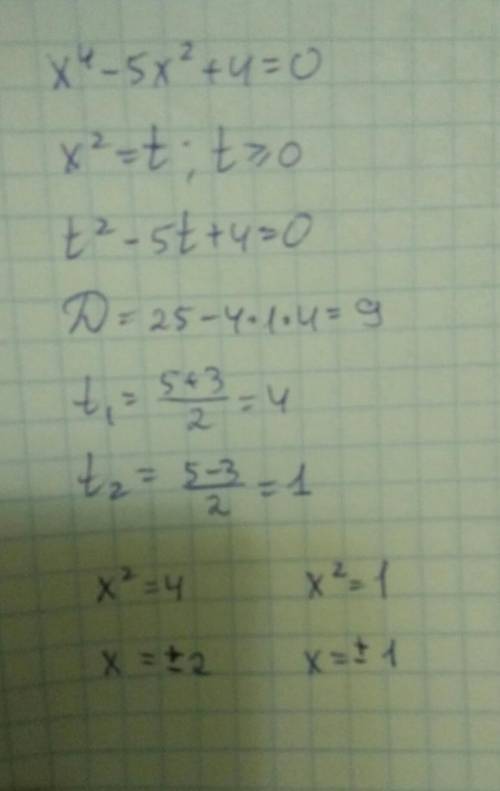 x⁴ - 5x² + 4 = 0
x² = t ; t ⩾ 0
t² - 5t + 4 = 0
D = 25 - 4·1·4 = 9
t₁ = (5+3)/2 = 4
t₂ = (5-3)/2 = 1
x² = 4 x² = 1
x = ±2 x = ±1